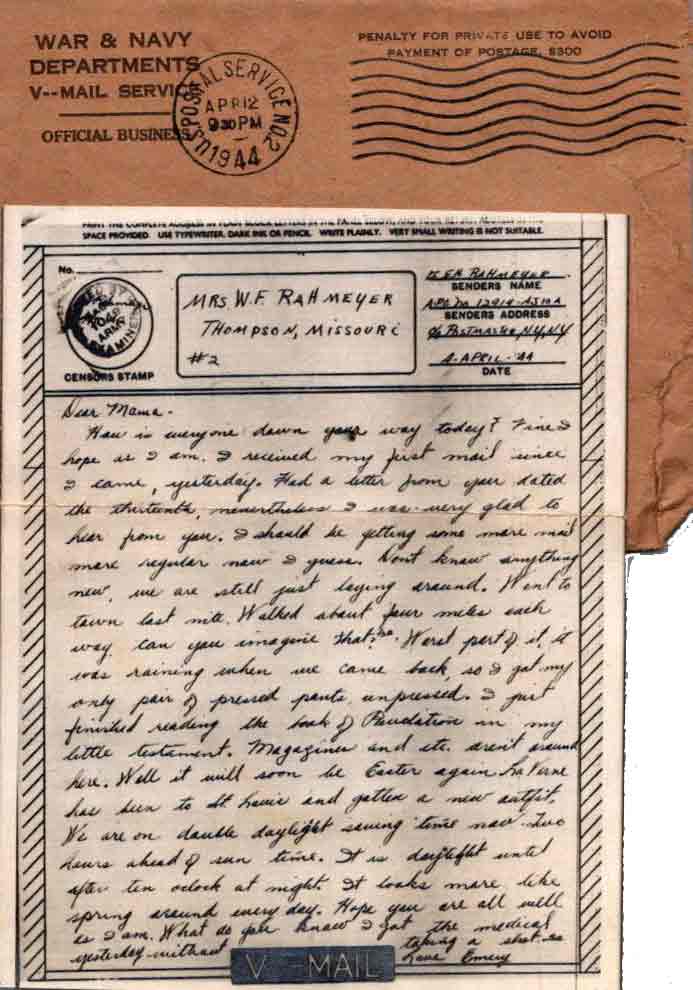 WAR & NAVY
DEPARTMENTS
V--MAIL SERVICE
OFFICIAL BUSINESS
U.S. POSTAL SERVICE NO. 2
APR 12
9 30 PM
1944
PENALTY FOR PRIVATE USE TO AVOID
PAYMENT OF POSTAGE, $300
PRINT THE COMPLETE ADDRESS IN PLAIN BLOCK LETTERS IN THE PANEL BELOW, AND YOUR RETURN ADDRESS IN THE
SPACE PROVIDED. USE TYPEWRITER, DARK INK OR PENCIL. WRITE PLAINLY. VERY SMALL WRITING IS NOT SUITABLE.
No.
ARMY
EXAMINER
CENSORS STAMP
MRS W.F. RAHMEYER
THOMPSON, MISSOURI
#2
E.H. RAHMEYER
SENDERS NAME
APO No 12919-A
SENDERS ADDRESS
c/o POSTMASTER, N.Y., N.Y.
4-APRIL-'44
DATE
Dear Mama-
How is everyone down your way today? Fine I
hope as I am. I received my first mail since
I came, yesterday. Had a letter from you dated
the thirteenth, nevertheless I was very glad to
hear from you. I should be getting some more mail
more regular now I guess. Dont know anything
new, we are still just laying around. Went to
town last nite. Walked about four miles each
way can you imagine that? Worst part of it, it
was raining when we came back, so I got my
only pair of pressed pants, unpressed. I just
finished reading the book of Revelation in my
little testament. Magazines and etc. arent around
here. Well it will soon be Easter again. La Verne
has been to St Louis and gotten a new outfit.
We are on double daylight saving time now. Two
hours ahead of sun time. It is daylight until
after ten oclock at night. It looks more like
spring around every day. Hope you are all well
as I am. What do you know I got the medical
yesterday without taking a shot.
Love Emery
V--MAIL